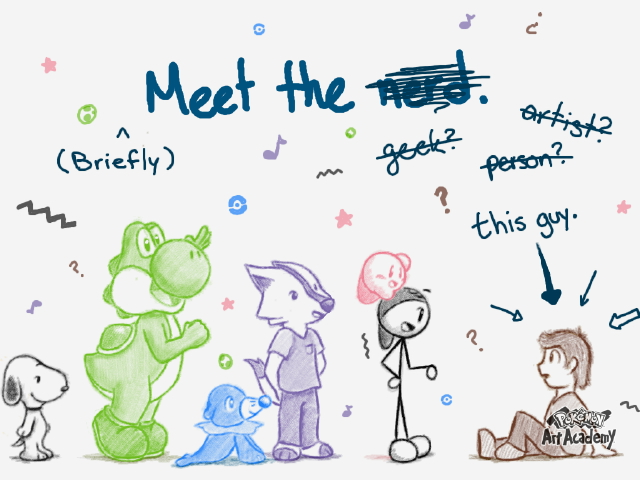 Meet the nerd.
^
(Briefly)
geek?
artist?
person?
this guy.
POKÉMON
Art Academy